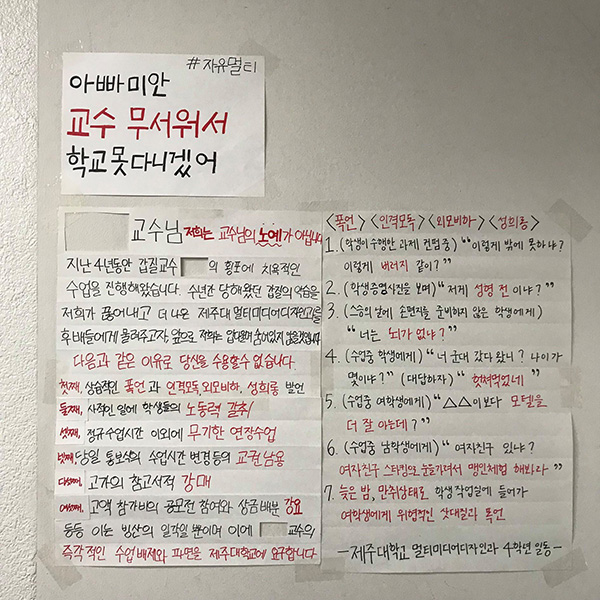 #자유멀티
아빠 미안
교수 무서워서
학교 못 다니겠어
교수님 저희는 교수님의 노예가 아닙니다
지난 4년동안 갑질교수 의 횡포에 치욕적인
수업을 진행해왔습니다. 수년간 당해왔던 갑질의 악습을
저희가 끊어내고 더 나은 제주대 멀티미디어디자인과를
후배들에게 물려주고자, 앞으로 저희는 침대응 숨어있지 않을것입니다
다음과 같은 이유로 당신을 수용할 수 없습니다.
첫째, 상습적인 폭언과 인격모독, 외모비하, 성희롱 발언
둘째, 사적인 일에 학생들의 노동력 갈취
셋째, 정규수업시간 이외에 무기한 연장수업
넷째, 당일 통보식의 수업시간 변경등의 교권남용
다섯째, 고가의 참고서적 강매
여섯째, 고액 참가비의 공모전 참여와 상금배분 강요
등등 이는 빙산의 일각일 뿐이며 이에 교수의
즉각적인 수업 배제와 파면을 제주대학교에 요구합니다
<폭언> <인격모독> <외모비하> <성희롱>
1. (학생이 수행한 과제 컨펌 중) "이렇게 밖에 못하냐?
이렇게 버러지 같이?"
2. (학생증명사진을 보며) "저게 성형 전 이냐?"
3. (스승의 날에 손편지를 준비하지 않은 학생에게)
"너는 뇌가 없냐?"
4. (수업중 학생에게) "너 군대 갔다 왔니? 나이가
몇이냐?" (대답하자) "헛쳐먹었네"
5. (수업중 여학생에게) "△△이보다 모텔을
더 잘 아는데?"
6. (수업중 남학생에게) "여자친구 있냐?
여자친구 스타킹으로 눈을 가려서 맹인체험 해봐라"
7. 늦은 밤, 만취상태로 학생 작업실에 들어가
여학생에게 위협적인 삿대질과 폭언
-제주대학교 멀티미디어디자인과 4학년 일동-